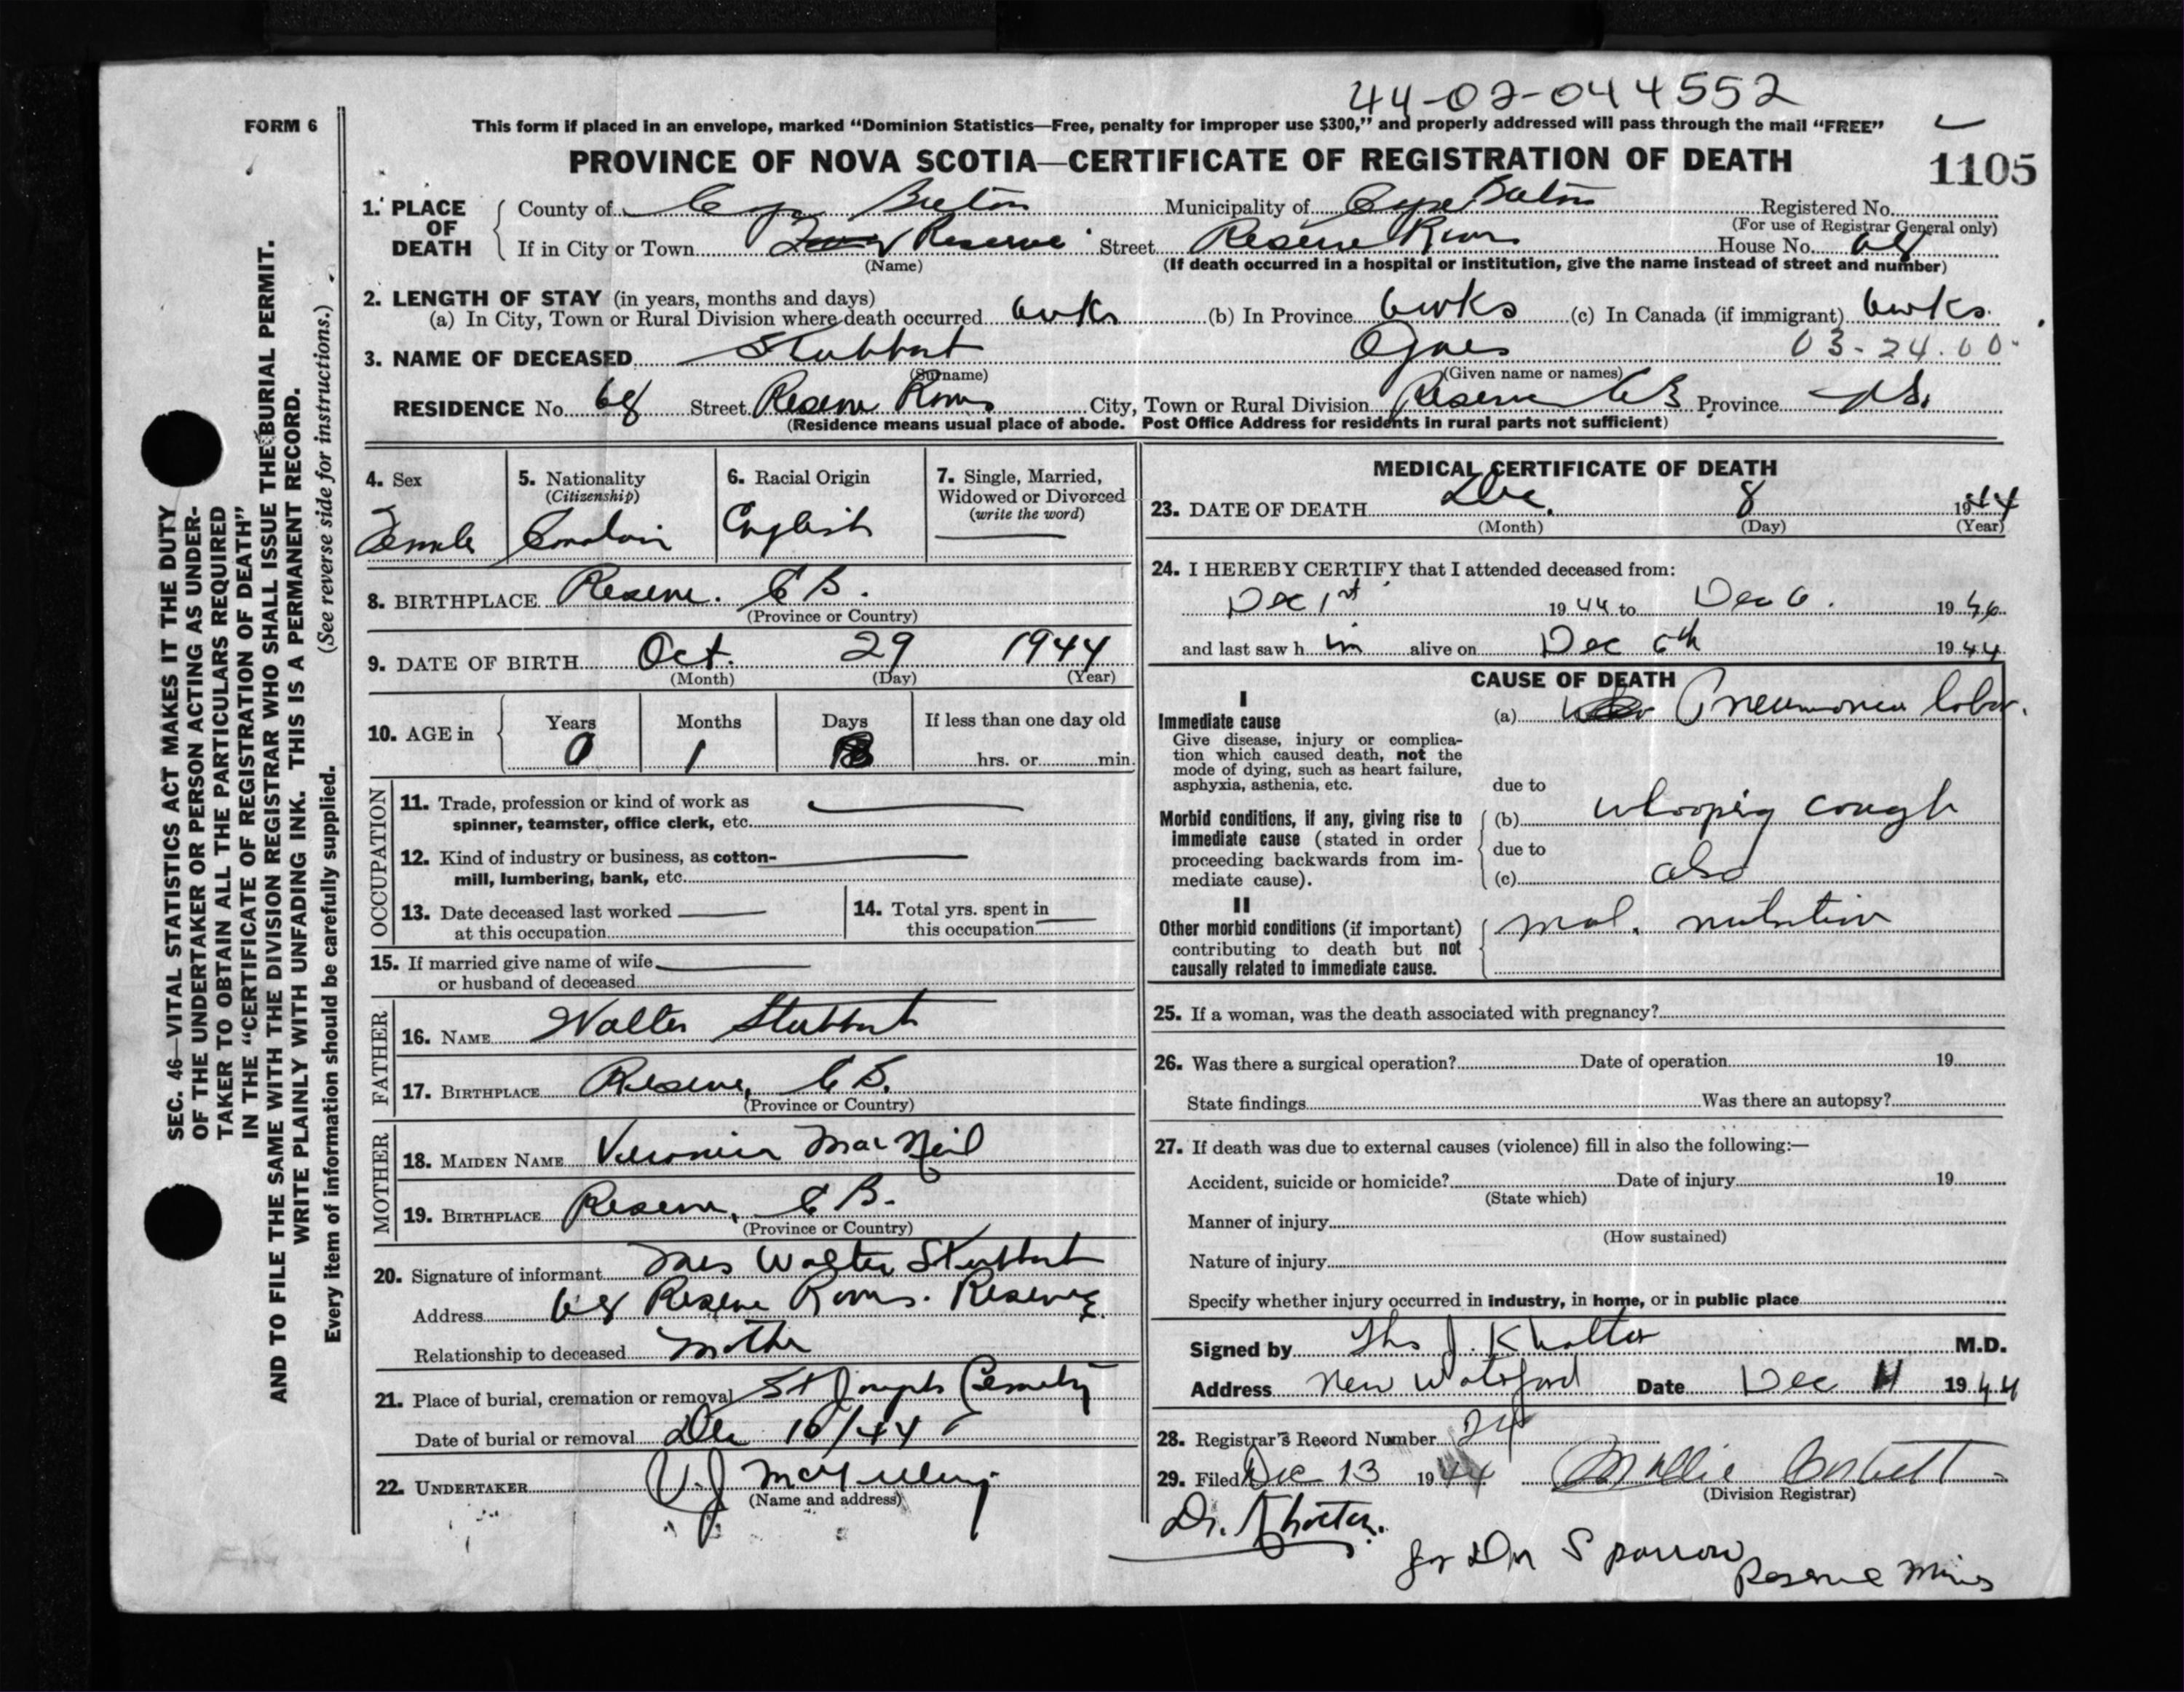 44-02-044552
FORM 6
This form if placed in an envelope, marked “Dominion Statistics—Free, penalty for improper use $300,” and properly addressed will pass through the mail “FREE”
PROVINCE OF NOVA SCOTIA—CERTIFICATE OF REGISTRATION OF DEATH
1105
1. PLACE OF DEATH
County of Cape Breton Municipality of Cape Breton Registered No.
(For use of Registrar General only)
If in City or Town Reserve Street Reserve Rows House No. 68
(Name) (If death occurred in a hospital or institution, give the name instead of street and number)
2. LENGTH OF STAY (in years, months and days)
(a) In City, Town or Rural Division where death occurred 6wks (b) In Province 6wks (c) In Canada (if immigrant) 6wks.
3. NAME OF DECEASED Stubbart Agnes 03-24.00
(Surname) (Given name or names)
RESIDENCE No. 68 Street Reserve Rows City, Town or Rural Division Reserve C B Province N.S.
(Residence means usual place of abode. Post Office Address for residents in rural parts not sufficient)
4. Sex
Female
5. Nationality
(Citizenship)
Canadian
6. Racial Origin
English
7. Single, Married,
Widowed or Divorced
(write the word)
8. BIRTHPLACE Reserve. C B.
(Province or Country)
9. DATE OF BIRTH Oct. 29 1944
(Month) (Day) (Year)
10. AGE in
Years Months Days If less than one day old
0 1 hrs. or min.
OCCUPATION
11. Trade, profession or kind of work as
spinner, teamster, office clerk, etc.
12. Kind of industry or business, as cotton-
mill, lumbering, bank, etc.
13. Date deceased last worked
at this occupation
14. Total yrs. spent in
this occupation
15. If married give name of wife
or husband of deceased
FATHER
16. NAME Walter Stubbart
17. BIRTHPLACE Reserve, C B.
(Province or Country)
MOTHER
18. MAIDEN NAME Veronica MacNeil
19. BIRTHPLACE Reserve, C B.
(Province or Country)
20. Signature of informant Mrs Walter Stubbart
Address 68 Reserve Rows. Reserve
Relationship to deceased Mother
21. Place of burial, cremation or removal St Josephs Cemetry
Date of burial or removal Dec 10/44
22. UNDERTAKER V.J.
(Name and address)
MEDICAL CERTIFICATE OF DEATH
23. DATE OF DEATH Dec. 8 1944
(Month) (Day) (Year)
24. I HEREBY CERTIFY that I attended deceased from:
Dec 1st 1944 to Dec 6. 19
and last saw h im alive on Dec 6th 1944
CAUSE OF DEATH
I
Immediate cause
Give disease, injury or complica-
tion which caused death, not the
mode of dying, such as heart failure,
asphyxia, asthenia, etc.
(a) Pneumonia lobar.
due to
Morbid conditions, if any, giving rise to
immediate cause (stated in order
proceeding backwards from im-
mediate cause).
(b) whooping cough
due to
(c) also
II
Other morbid conditions (if important)
contributing to death but not
causally related to immediate cause.
mal. nutrition
25. If a woman, was the death associated with pregnancy?
26. Was there a surgical operation? Date of operation 19
State findings Was there an autopsy?
27. If death was due to external causes (violence) fill in also the following:—
Accident, suicide or homicide? Date of injury 19
(State which)
Manner of injury
(How sustained)
Nature of injury
Specify whether injury occurred in industry, in home, or in public place
Signed by Ths J. Kholter M.D.
Address New Waterford Date Dec 11 1944
28. Registrar's Record Number 24
29. Filed Dec 13 1944 Mollie Corbett
(Division Registrar)
Dr.
for Dr Sparrow
Reserve Mines
SEC. 46—VITAL STATISTICS ACT MAKES IT THE DUTY
OF THE UNDERTAKER OR PERSON ACTING AS UNDER-
TAKER TO OBTAIN ALL THE PARTICULARS REQUIRED
IN THE “CERTIFICATE OF REGISTRATION OF DEATH”
AND TO FILE THE SAME WITH THE DIVISION REGISTRAR WHO SHALL ISSUE THE BURIAL PERMIT.
WRITE PLAINLY WITH UNFADING INK. THIS IS A PERMANENT RECORD.
Every item of information should be carefully supplied. (See reverse side for instructions.)